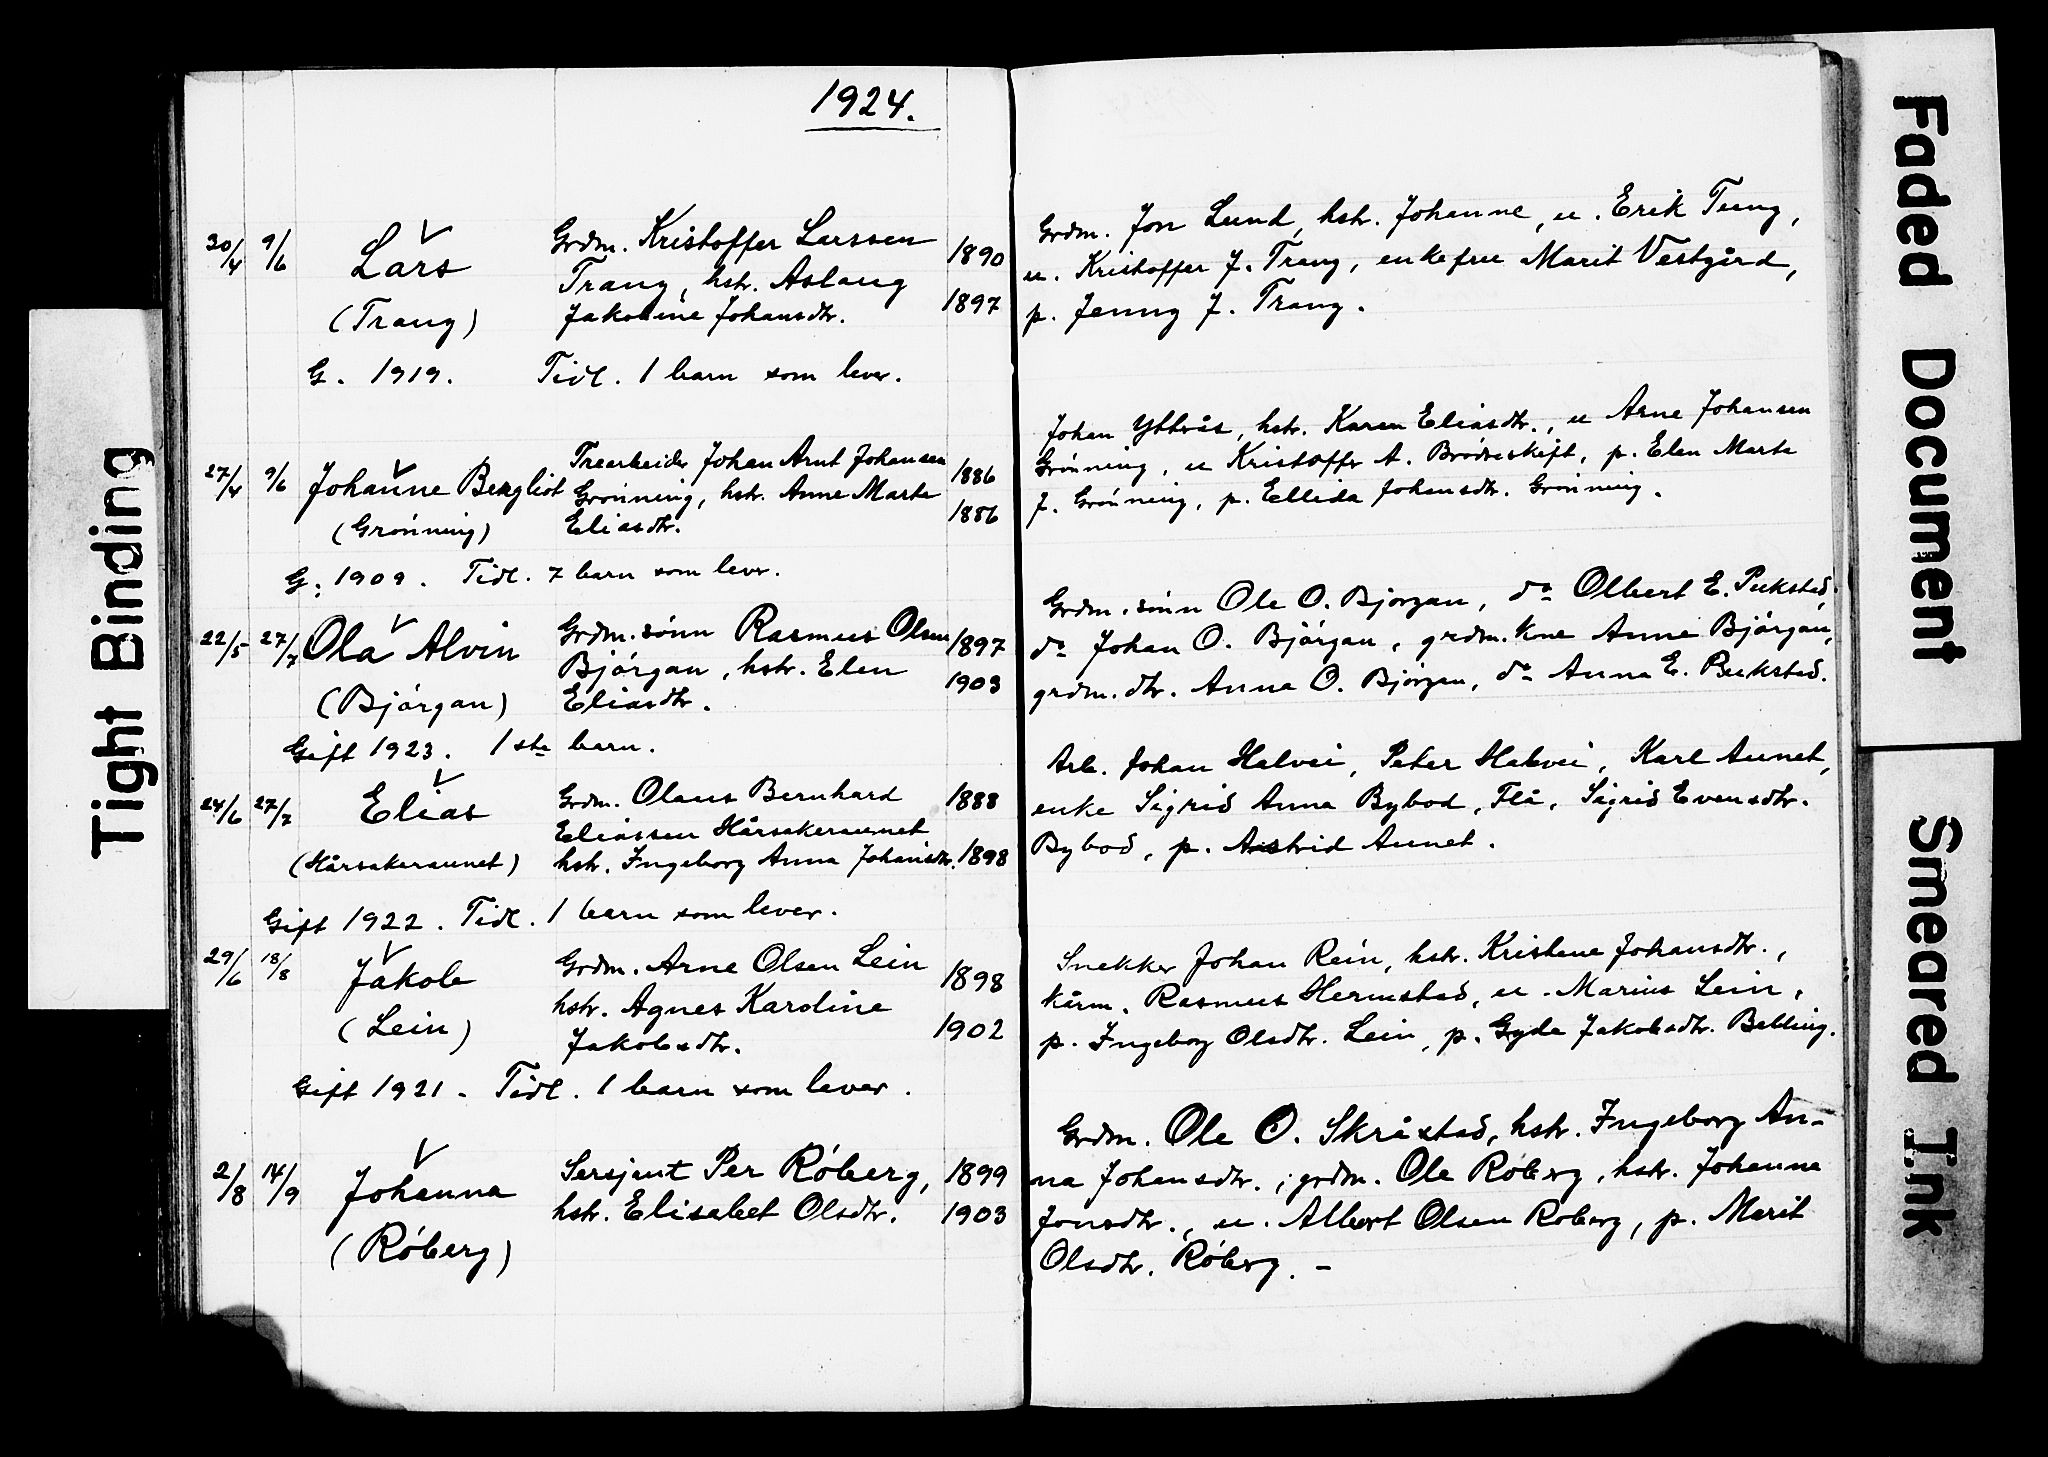 1924.
30/4 9/6 Lars
(Trang)
Grdm. Kristoffer Larssen 1890
Trang, hstr. Aslaug
Jakobine Johansdtr. 1897
G. 1919. Tidl. 1 barn som lever.
Grdm. Jon Lund, hstr. Johanne, u. Erik Tung,
u. Kristoffer J. Trang, enkefru Marit Vestgård,
p. Jenny J. Trang.
27/4 9/6 Johanne Bergliot
(Grønning)
Trearbeider Johan Arnt Johansen 1886
Grønning, hstr. Anne Marta
Eliasdtr. 1886
G. 1909. Tidl. 7 barn som lever.
Johan Ytterås, hstr. Karen Eliasdtr., u Arne Johansen
Grønning, u Kristoffer A. Brødreskift, p. Elen Marta
J. Grønning, p. Ellida Johansdtr. Grønning.
22/5 27/7 Ola Alvin
(Bjørgan)
Grdm. sønn Rasmus Olsen 1897
Bjørgan, hstr. Elen 1903
Eliasdtr.
Gift 1923. 1ste barn.
Grdm. sønn Ole O. Bjørgan, do Olbert E.
do Johan O. Bjørgan, grdm. kone Anne Bjørgan,
grdm. dtr. Anna O. Bjørgan, do Anna E.
24/6 27/7 Elias
(Hårsakeraunet)
Grdm. Olaus Bernhard 1888
Eliassen Hårsakeraunet
hstr. Ingeborg Anna Johansdtr. 1898
Gift 1922. Tidl. 1 barn som lever.
Arb. Johan Halvei, Peter Halvei, Karl Aunet,
enke Sigrid Anna Bybod, Flå, Sigrid Evensdtr.
Bybod, p. Astrid Aunet.
29/6 18/8 Jakob
(Lein)
Grdm. Arne Olsen Lein 1898
hstr. Agnes Karoline
Jakobsdtr. 1902
Gift 1921 - Tidl. 1 barn som lever.
Snekker Johan Rein, hstr. Kristene Johansdtr.,
kårm. Rasmus Hermstad, u. Marius Lein,
p. Ingeborg Olsdtr. Lein, p. Gyda Jakobsdtr. Balling.
2/8 14/9 Johanna
(Røberg)
Sersjant Per Røberg, 1899
hstr. Elisabet Olsdtr. 1903
Grdm. Ole O. Skråstad, hstr. Ingeborg An-
na Johansdtr., grdm. Ole Røberg, hstr. Johanna
Jonsdtr., u. Albert Olsen Røberg, p. Marit
Olsdtr. Røberg. -
Tight Binding
Faded Document
Smeared Ink